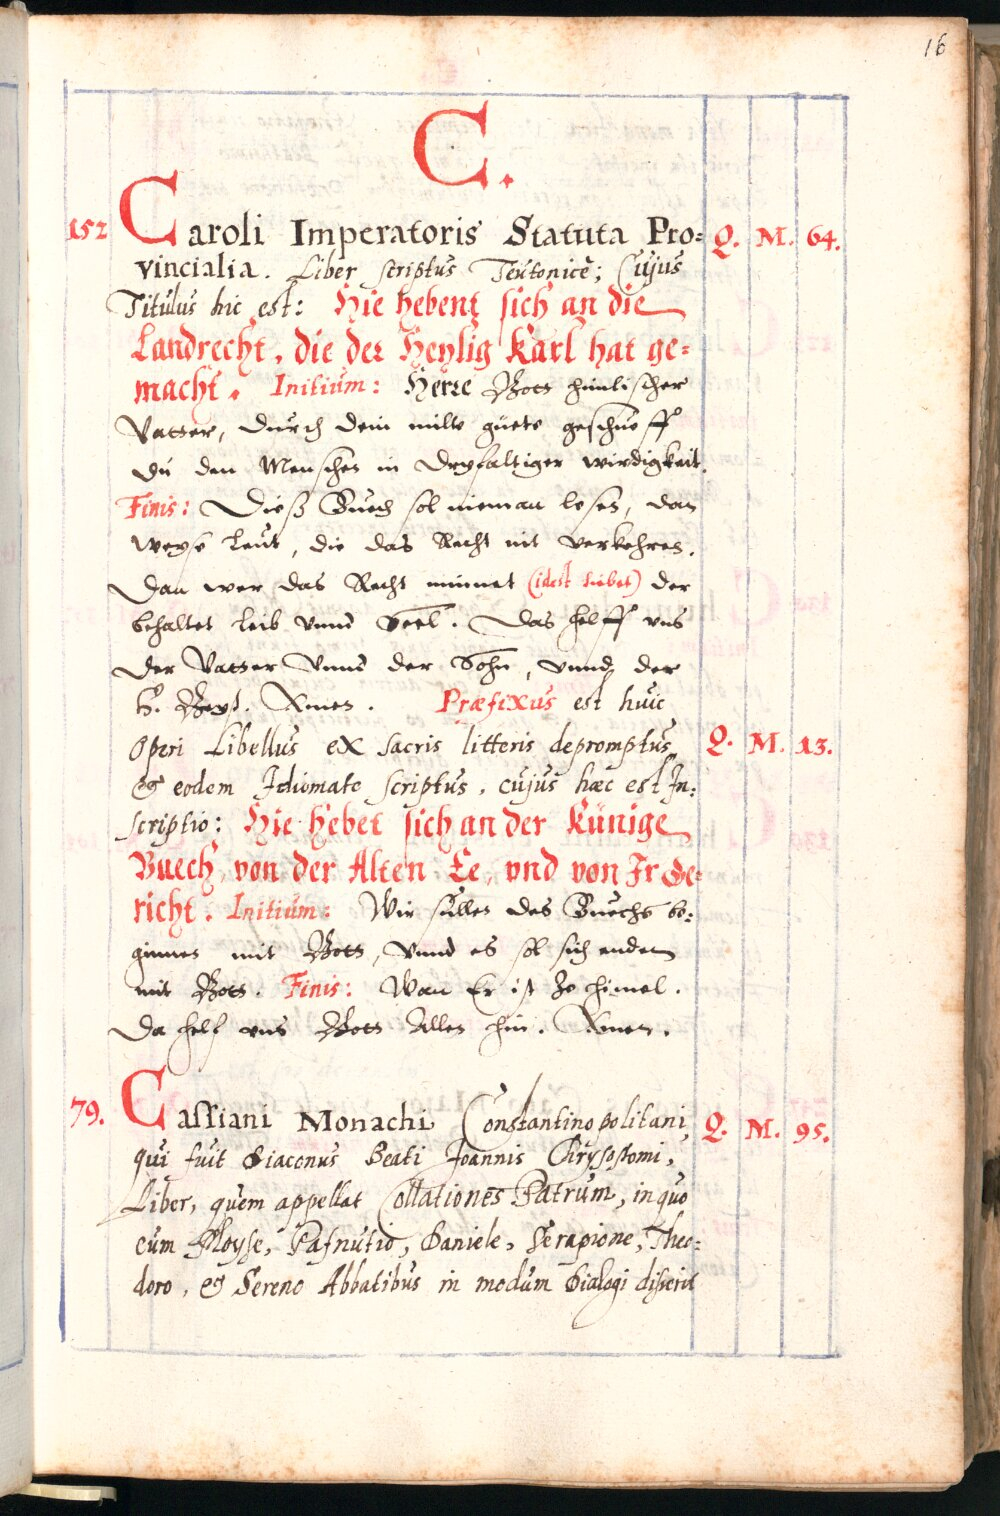 16
C.
152 Caroli Imperatoris Statuta Pro= Q. M. 64.
vincialia. Liber scriptus Teutonicè; Cujus
Titulus hic est: Hie hebent sich an die
Landrecht, die der Heylig Karl hat ge=
macht. Initium: Herre Gott himlischer
Vatter, durch dein milte güete geschueff
du den Menschen in dryfaltiger wirdigkait.
Finis: Dieß Buech sol nieman lesen, dan
weyse leut, die das Recht nit verkehren.
Dan wer das Recht minnet (idest liebet) der
behaltet leib vnnd Seel. Das helff vns
der Vatter vnnd der Sohn, vnnd der
H. Geist. Amen. Præfixus est huic
Operi Libellus ex sacris litteris depromptus Q. M. 13.
& eodem Idiomate scriptus, cujus hæc est In=
scriptio: Hie hebet sich an der Künige
Buech, von der Alten Ee, vnd von Ir Ge=
richt. Initium: Wir sullen des Buechs be=
ginnen mit Gott, vnnd es sol sich enden
mit Gott. Finis: Wan Er ist Ze himel.
Da helf vns Gott Allen hin. Amen.
79. Cassiani Monachi Constantinopolitani, Q. M. 95.
qui fuit Diaconus Beati Joannis Chrysostomi,
Liber, quem appellat Collationes Patrum, in quo
cum Moyse, Pafnutio, Daniele, Serapione, Theo=
doro, & Sereno Abbatibus in modum Dialogi disserit